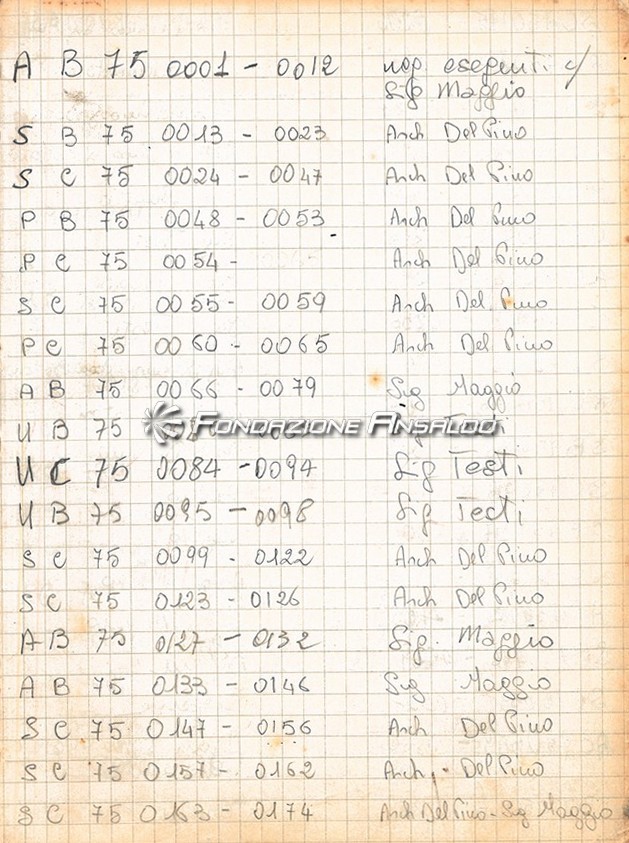 A B 75 0001 - 0012 neg eseguiti c/
Sig Maggio
S B 75 0013 - 0023 Arch Del Pino
S C 75 0024 - 0047 Arch Del Pino
P B 75 0048 - 0053 Arch Del Pino
P C 75 0054 - Arch Del Pino
S C 75 0055 - 0059 Arch Del Pino
P C 75 0060 - 0065 Arch Del Pino
A B 75 0066 - 0079 Sig Maggio
U B 75 Testi
FONDAZIONE ANSALDO
U C 75 0084 - 0094 Sig Testi
U B 75 0095 - 0098 Sig Testi
S C 75 0099 - 0122 Arch Del Pino
S C 75 0123 - 0126 Arch Del Pino
A B 75 0127 - 0132 Sig. Maggio
A B 75 0133 - 0146 Sig Maggio
S C 75 0147 - 0156 Arch Del Pino
S C 75 0157 - 0162 Arch. Del Pino
S C 75 0163 - 0174 Arch Del Pino - Sig Maggio